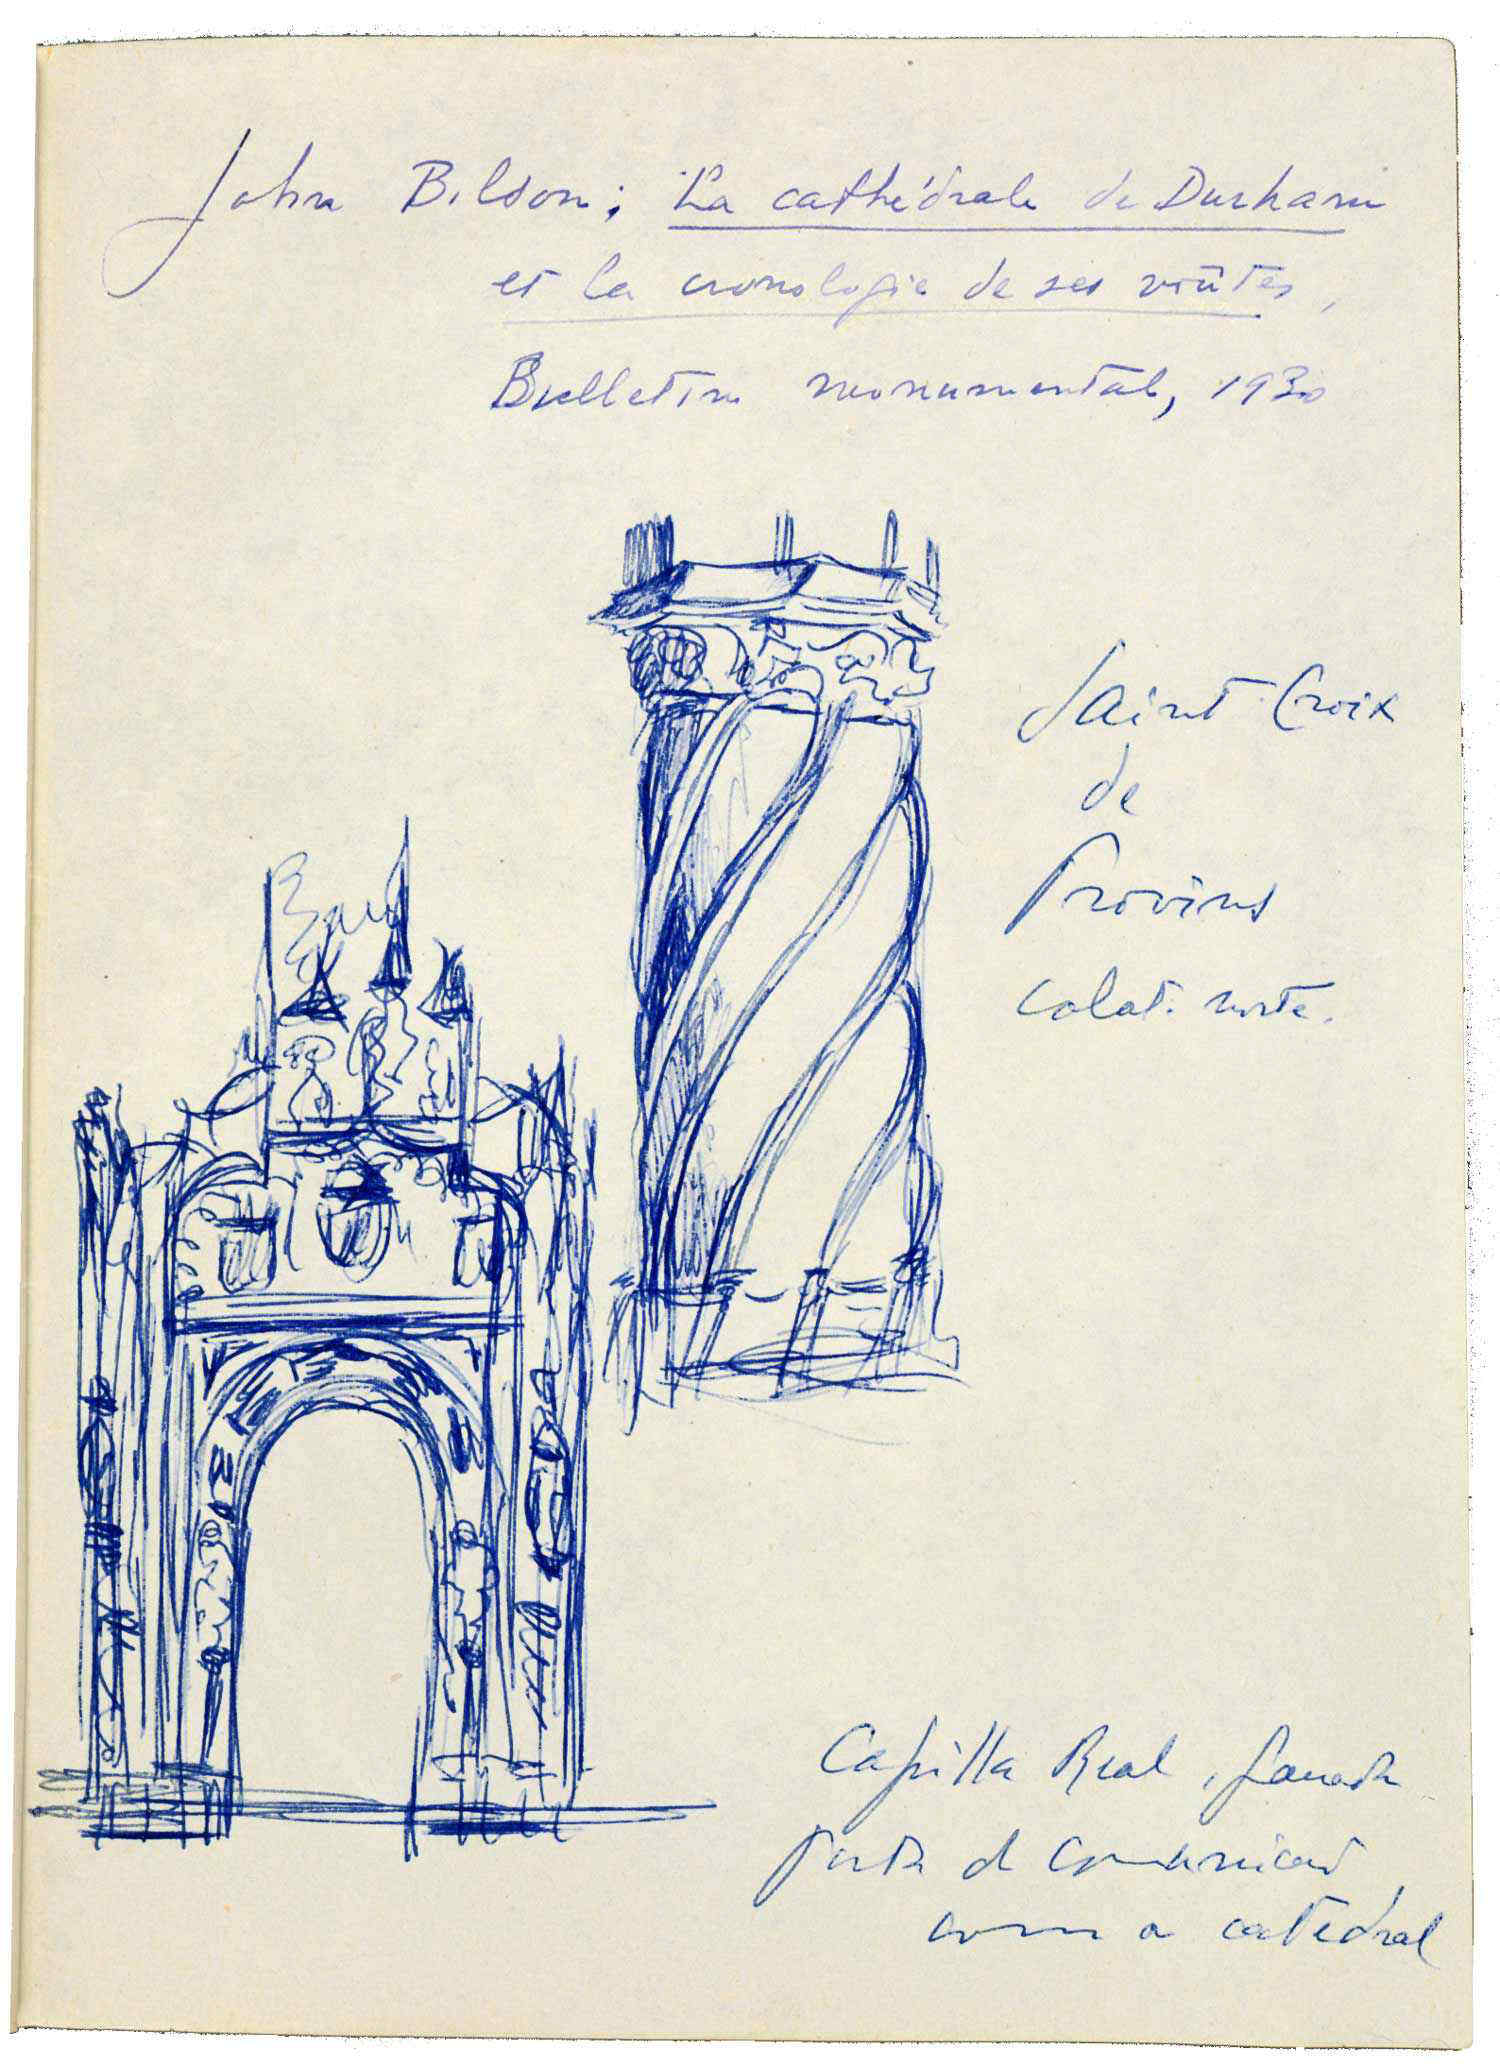 John Bilson; La cathédrale de Durham
et la cronologie de ses voûtes,
Bulletin monumental, 1930
Saint Croix
de
Provins
colat. norte.
Capilla Real, Granada
porta de comunicaç
com a catedral